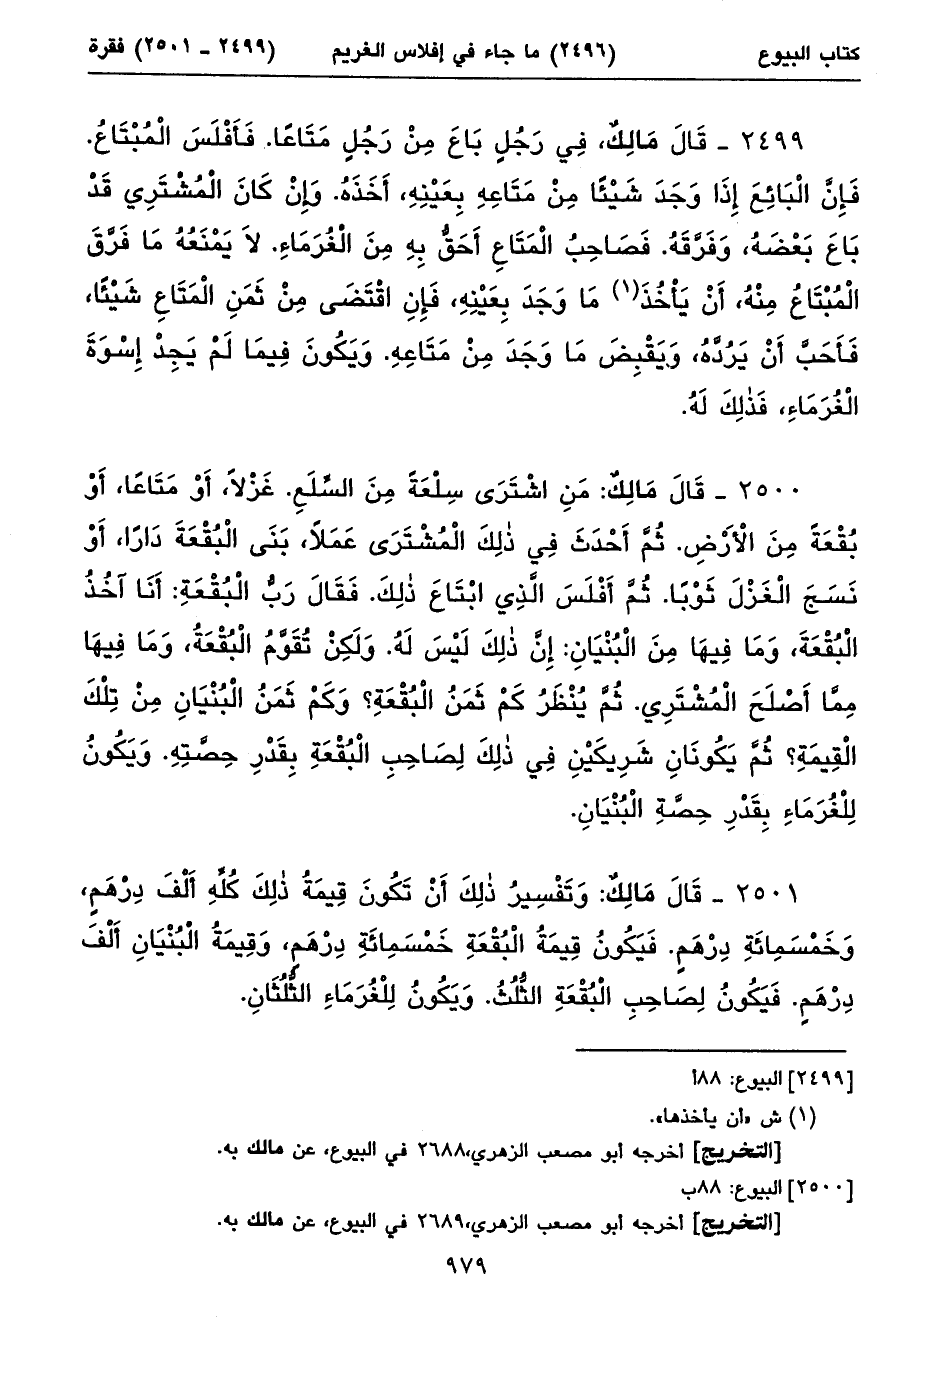 كتاب البيوع (٢٤٩٦) ما جاء في إفلاس الغريم (٢٤٩٩ - ٢٥٠١) فقرة
٢٤٩٩ - قَالَ مَالِكٌ، فِي رَجُلٍ بَاعَ مِنْ رَجُلٍ مَتَاعًا. فَأَفْلَسَ الْمُبْتَاعُ.
فَإِنَّ الْبَائِعَ إِذَا وَجَدَ شَيْئًا مِنْ مَتَاعِهِ بِعَيْنِهِ، أَخَذَهُ. وَإِنْ كَانَ الْمُشْتَرِي قَدْ
بَاعَ بَعْضَهُ، وَفَرَّقَهُ. فَصَاحِبُ الْمَتَاعِ أَحَقُّ بِهِ مِنَ الْغُرَمَاءِ. لاَ يَمْنَعُهُ مَا فَرَّقَ
الْمُبْتَاعُ مِنْهُ، أَنْ يَأْخُذَ(١) مَا وَجَدَ بِعَيْنِهِ، فَإِنِ اقْتَضَى مِنْ ثَمَنِ الْمَتَاعِ شَيْئًا،
فَأَحَبَّ أَنْ يَرُدَّهُ، وَيَقْبِضَ مَا وَجَدَ مِنْ مَتَاعِهِ. وَيَكُونَ فِيمَا لَمْ يَجِدْ إِسْوَةَ
الْغُرَمَاءِ، فَذٰلِكَ لَهُ.
٢٥٠٠ - قَالَ مَالِكٌ: مَنِ اشْتَرَى سِلْعَةً مِنَ السِّلَعِ. غَزْلاً، أَوْ مَتَاعًا، أَوْ
بُقْعَةً مِنَ الْأَرْضِ. ثُمَّ أَحْدَثَ فِي ذٰلِكَ الْمُشْتَرَى عَمَلاً، بَنَى الْبُقْعَةَ دَارًا، أَوْ
نَسَجَ الْغَزْلَ ثَوْبًا. ثُمَّ أَفْلَسَ الَّذِي ابْتَاعَ ذٰلِكَ. فَقَالَ رَبُّ الْبُقْعَةِ: أَنَا آخُذُ
الْبُقْعَةَ، وَمَا فِيهَا مِنَ الْبُنْيَانِ: إِنَّ ذٰلِكَ لَيْسَ لَهُ. وَلَكِنْ تُقَوَّمُ الْبُقْعَةُ، وَمَا فِيهَا
مِمَّا أَصْلَحَ الْمُشْتَرِي. ثُمَّ يُنْظَرُ كَمْ ثَمَنُ الْبُقْعَةِ؟ وَكَمْ ثَمَنُ الْبُنْيَانِ مِنْ تِلْكَ
الْقِيمَةِ؟ ثُمَّ يَكُونَانِ شَرِيكَيْنِ فِي ذٰلِكَ لِصَاحِبِ الْبُقْعَةِ بِقَدْرِ حِصَّتِهِ. وَيَكُونُ
لِلْغُرَمَاءِ بِقَدْرِ حِصَّةِ الْبُنْيَانِ.
٢٥٠١ - قَالَ مَالِكٌ: وَتَفْسِيرُ ذٰلِكَ أَنْ تَكُونَ قِيمَةُ ذٰلِكَ كُلِّهِ أَلْفَ دِرْهَمٍ،
وَخَمْسَمِائَةِ دِرْهَمٍ. فَيَكُونُ قِيمَةُ الْبُقْعَةِ خَمْسَمِائَةِ دِرْهَمٍ، وَقِيمَةُ الْبُنْيَانِ أَلْفَ
دِرْهَمٍ. فَيَكُونُ لِصَاحِبِ الْبُقْعَةِ الثُّلُثُ. وَيَكُونُ لِلْغُرَمَاءِ الثُّلُثَانِ.
[٢٤٩٩] البيوع: ٨٨أ
(١) ش «أن يأخذها».
[التخريج] أخرجه أبو مصعب الزهري،٢٦٨٨ في البيوع، عن مالك به.
[٢٥٠٠] البيوع: ٨٨ب
[التخريج] أخرجه أبو مصعب الزهري،٢٦٨٩ في البيوع، عن مالك به.
٩٧٩